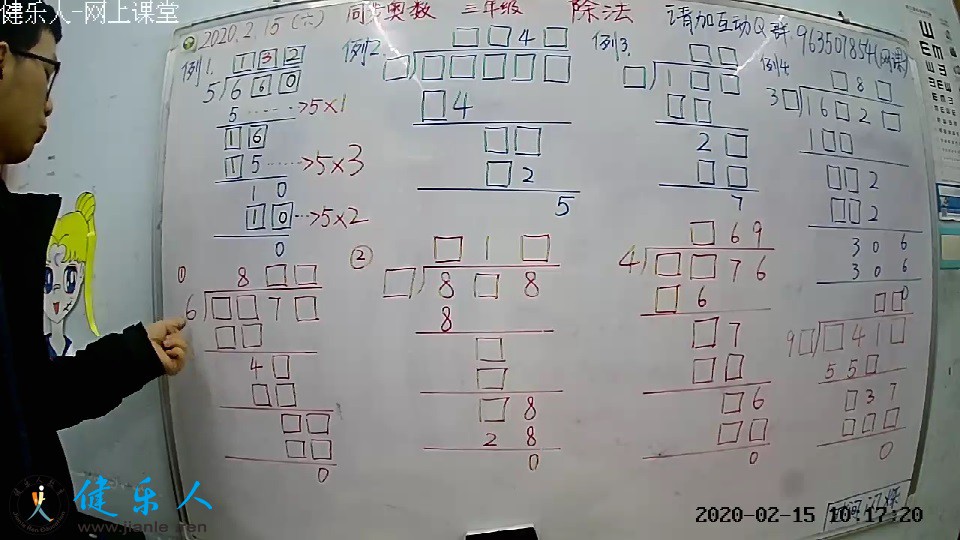 健乐人-网上课堂
2020.2.15 (六) 同步奥数 三年级 除法 请加互动Q群: 963501854(网课)
例1. 1 3 2
5 6 6 0
5 ……>5×1
1 6
1 5 ……>5×3
1 0
1 0 …>5×2
0
例2. □ □ 4 □
□ □ □ □ □ □
□ 4
□ □
□ 2
5
例3. □ □
□ 1 □ □
□ □
2 □
□ □
7
例4. □ 8 □
3 □ 1 6 □ 2 □
1 □ □
□ □ 2
□ □ 2
3 0 6
3 0 6
0
① 8 □ □
6 □ □ 7 □
□ □
4 □
□ □
□ □
□ □
0
② □ 1 □
□ 8 □ 8
8
□
□
□ 8
2 8
0
□ 6 9
4 □ □ 7 6
□ 6
□ 7
□ □
□ 6
□ □
0
□ □
9 □ □ 4 1 □
5 5 □
□ 3 7
□ □ □
0
健乐人
www.jianle.ren
2020-02-15 10:17:20